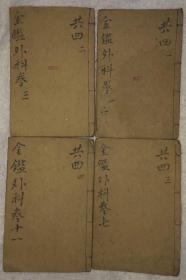 共四 一
金鑑外科卷一二
共四 二
金鑑外科卷三
共四 三
金鑑外科卷七
共四 四
金鑑外科卷十一